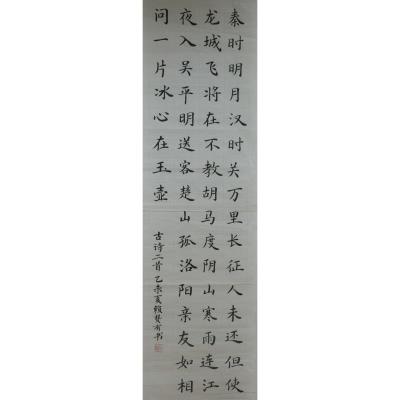 秦时明月汉时关万里长征人未还但使
龙城飞将在不教胡马度阴山寒雨连江
夜入吴平明送客楚山孤洛阳亲友如相
问一片冰心在玉壶
古诗二首乙未夏 贤有书